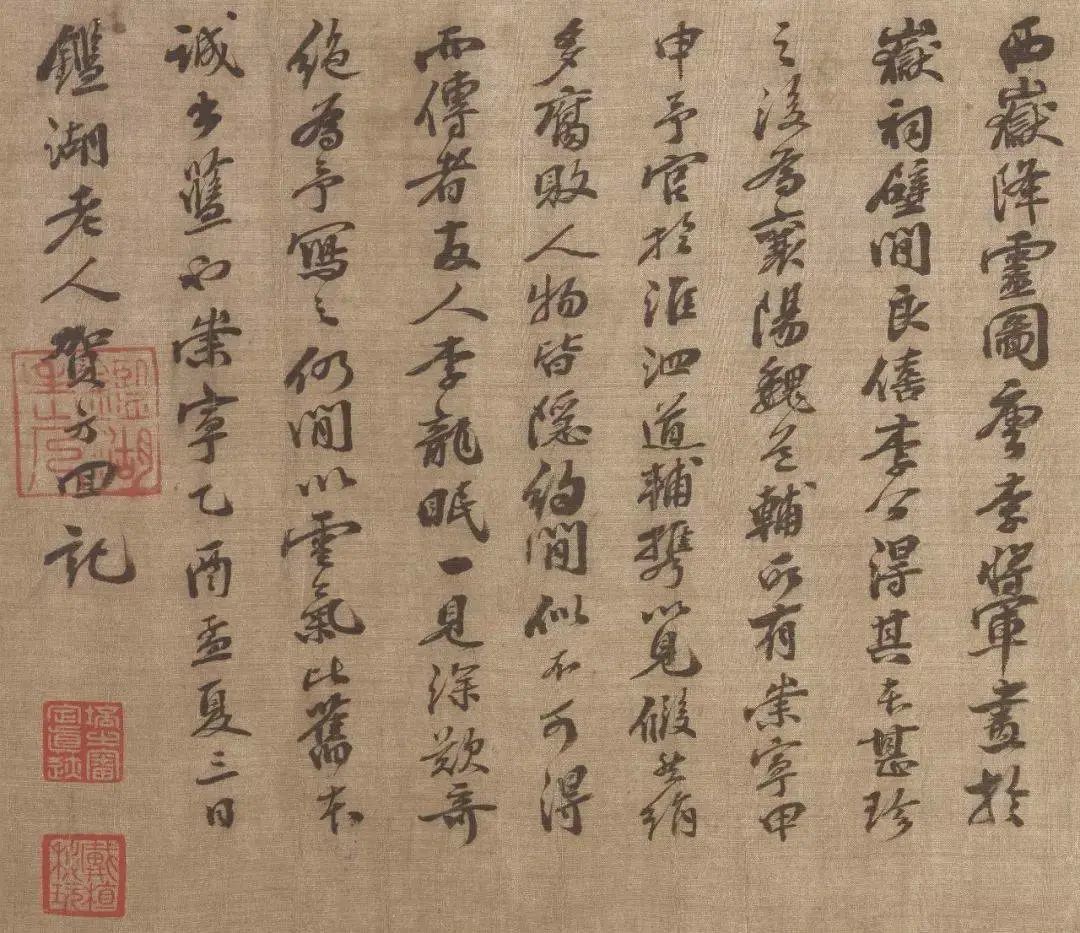 西嶽降靈圖唐李將軍畫於
嶽祠壁間良僖李公得其本甚珍
之後為襄陽魏道輔所有崇寧甲
申予官於淮泗道輔攜以見假然絹
多腐敗人物皆隱約間似不可得
而傳者友人李龍眠一見深歎奇
絕為予寫之仍間以雲氣比舊本
誠出藍也崇寧乙酉孟夏三日
鑑湖老人賀方回記
培之審定真跡